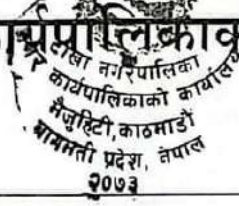 र्यपालिकाव
नगरपालिका
कार्यपालिकाको कार्यालय
मैजुहिटी, काठमाडौं
बागमती प्रदेश, नेपाल
२०७३